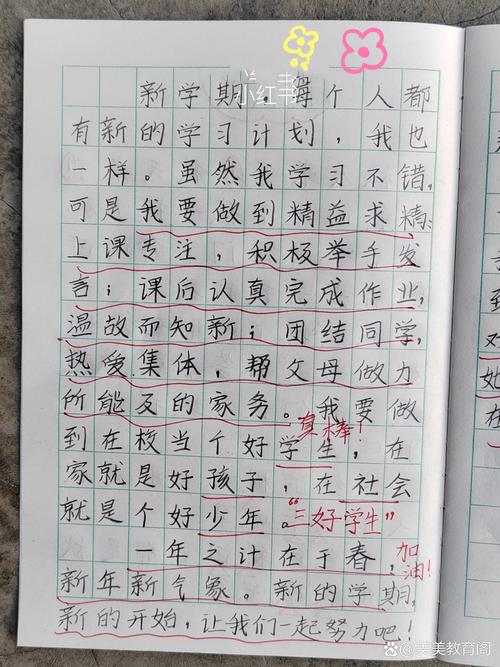 小红书
新学期，每个人都
有新的学习计划，我也
一样。虽然我学习不错，
可是我要做到精益求精：
上课专注，积极举手发
言；课后认真完成作业，
温故而知新；团结同学，
热爱集体，帮父母做力
所能及的家务。我要做
真棒！
到在校当个好学生，在
家就是好孩子，在社会
就是个好少年。
“三好学生”
一年之计在于春，
加油！
新年新气象。新的学期，
新的开始，让我们一起努力吧！
美教育阁